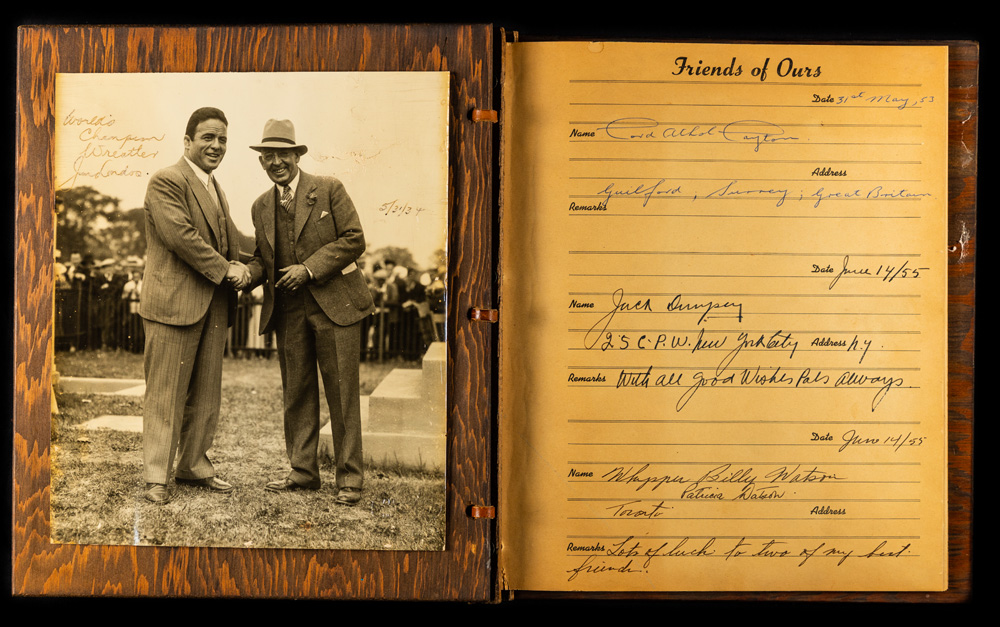 World's
Champion
Wrestler
Jim Londos
5/31/34
Friends of Ours
Date 31st May, 53
Name Lord Athol Layton
Address
Guilford, Surrey, Great Britain
Remarks
Date June 14/55
Name Jack Dempsey
25 C.P.W. New York City Address N.Y.
Remarks With all good Wishes Pals Always.
Date June 14/55
Name Whipper Billy Watson
Patricia Watson
Toronto Address
Remarks Lots of luck to two of my best
friends.